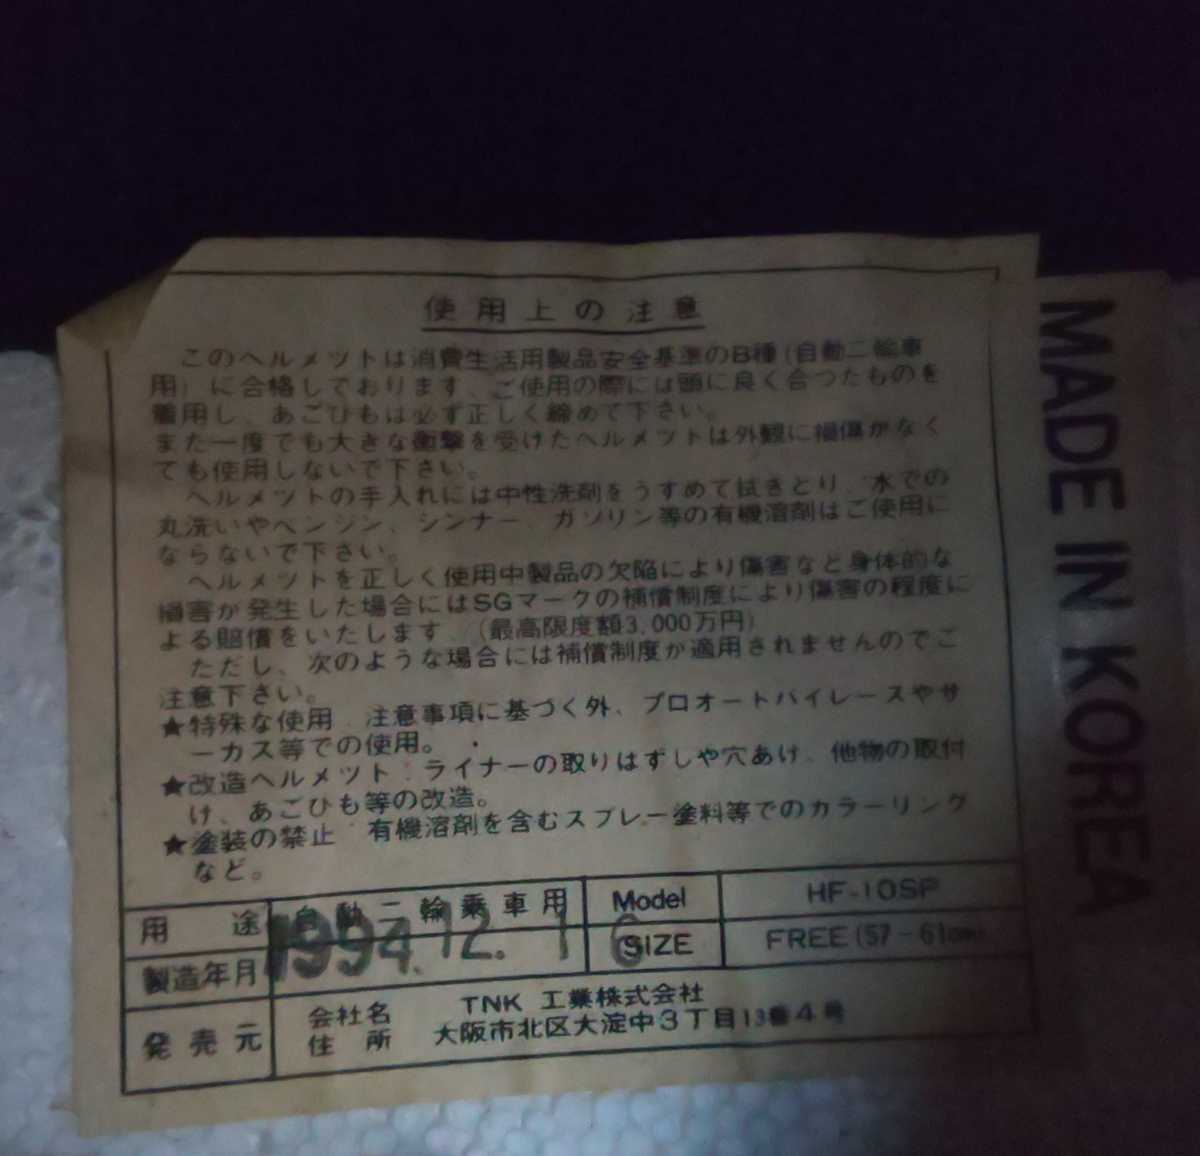 使用上の注意
このヘルメットは消費生活用製品安全基準のB種(自動二輪車
用)に合格しております、ご使用の際には頭に良く合つたものを
着用し、あごひもは必ず正しく締めて下さい。
また一度でも大きな衝撃を受けたヘルメットは外観に損傷がなく
ても使用しないで下さい。
ヘルメットの手入れには中性洗剤をうすめて拭きとり、水での
丸洗いやベンジン、シンナー、ガソリン等の有機溶剤はご使用に
ならないで下さい。
ヘルメットを正しく使用中製品の欠陥により傷害など身体的な
損害が発生した場合にはSGマークの補償制度により傷害の程度に
よる賠償をいたします、(最高限度額3,000万円)
ただし、次のような場合には補償制度が適用されませんのでご
注意下さい。
★特殊な使用 注意事項に基づく外、プロオートバイレースやサ
ーカス等での使用。
★改造ヘルメット:ライナーの取りはずしや穴あけ、他物の取付
け、あごひも等の改造。
★塗装の禁止 有機溶剤を含むスプレー塗料等でのカラーリング
など。
用途 自動二輪乗車用 Model HF-10SP
製造年月 1994.12.16 SIZE FREE(57-61cm)
発売元 会社名 TNK 工業株式会社
住所 大阪市北区大淀中3丁目13番4号
MADE IN KOREA